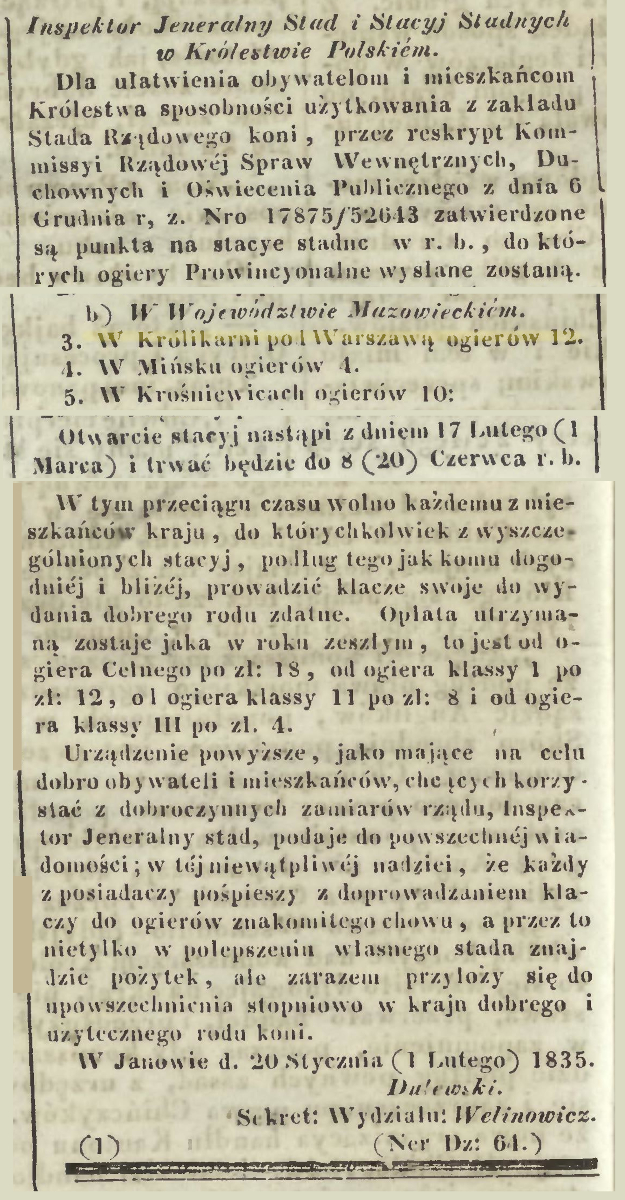 Inspektor Jeneralny Stad i Stacyj Stadnych
w Królestwie Polskiém.
Dla ułatwienia obywatelom i mieszkańcom
Królestwa sposobności użytkowania z zakładu
Stada Rządowego koni, przez reskrypt Kom-
missyi Rządowéj Spraw Wewnętrznych, Du-
chownych i Oświecenia Publicznego z dnia 6
Grudnia r, z. Nro 17875/52643 zatwierdzone
są punkta na stacye stadne w r. b., do któ-
rych ogiery Prowincyonalne wysłane zostaną.
b) W Województwie Mazowieckiém.
3. W Królikarni pod Warszawą ogierów 12.
4. W Mińsku ogierów 4.
5. W Krośniewicach ogierów 10:
Otwarcie stacyj nastąpi z dniem 17 Lutego (1
Marca) i trwać będzie do 8 (20) Czerwca r. b.
W tym przeciągu czasu wolno każdemu z mie-
szkańców kraju, do którychkolwiek z wyszcze-
gólnionych stacyj, podług tego jak komu dogo-
dniéj i bliżéj, prowadzić klacze swoje do wy-
dania dobrego rodu zdatne. Opłata utrzyma-
ną zostaje jaka w roku zeszłym, to jest od o-
giera Celnego po zł: 18, od ogiera klassy 1 po
zł: 12, od ogiera klassy II po zł: 8 i od ogie-
ra klassy III po zł. 4.
Urządzenie powyższe, jako mające na celu
dobro obywateli i mieszkańców, chcących korzy-
stać z dobroczynnych zamiarów rządu, Inspek-
tor Jeneralny stad, podaje do powszechnéj wia-
domości; w téj niewątpliwéj nadziei, że każdy
z posiadaczy pośpieszy z doprowadzaniem kla-
czy do ogierów znakomitego chowu, a przez to
nietylko w polepszeniu własnego stada znaj-
dzie pożytek, ale zarazem przyłoży się do
upowszechnienia stopniowo w kraju dobrego i
użytecznego rodu koni.
W Janowie d. 20 Stycznia (1 Lutego) 1835.
Dulewski.
Sekret: Wydziału: Welinowicz.
(1) (Ner Dz: 64.)